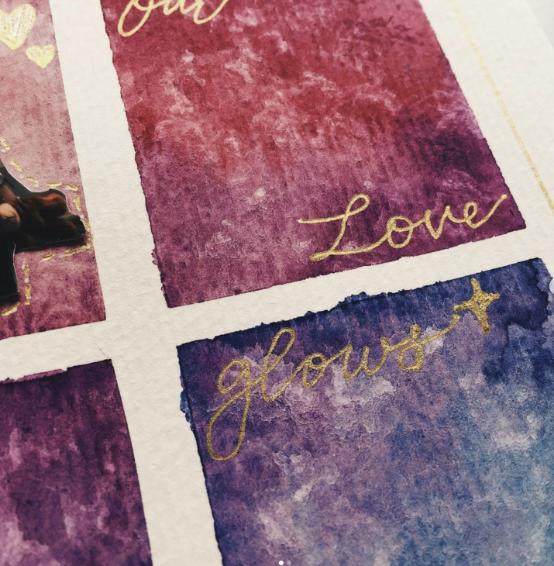 our
Love
glows